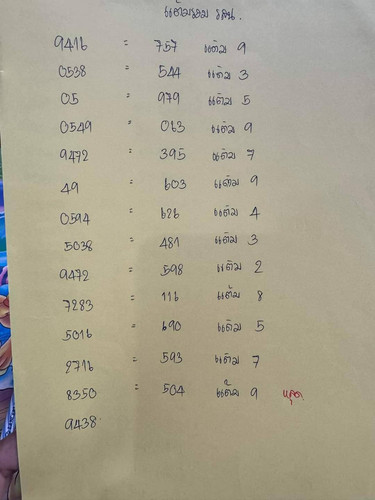 แต้มรวม บน.
9416 = 757 แต้ม 9
0538 = 544 แต้ม 3
05 = 979 แต้ม 5
0549 = 063 แต้ม 9
9472 = 395 แต้ม 7
49 = 603 แต้ม 9
0594 = 626 แต้ม 4
5038 = 481 แต้ม 3
9472 = 598 แต้ม 2
7283 = 116 แต้ม 8
5016 = 690 แต้ม 5
2716 = 593 แต้ม 7
8350 = 504 แต้ม 9
9438